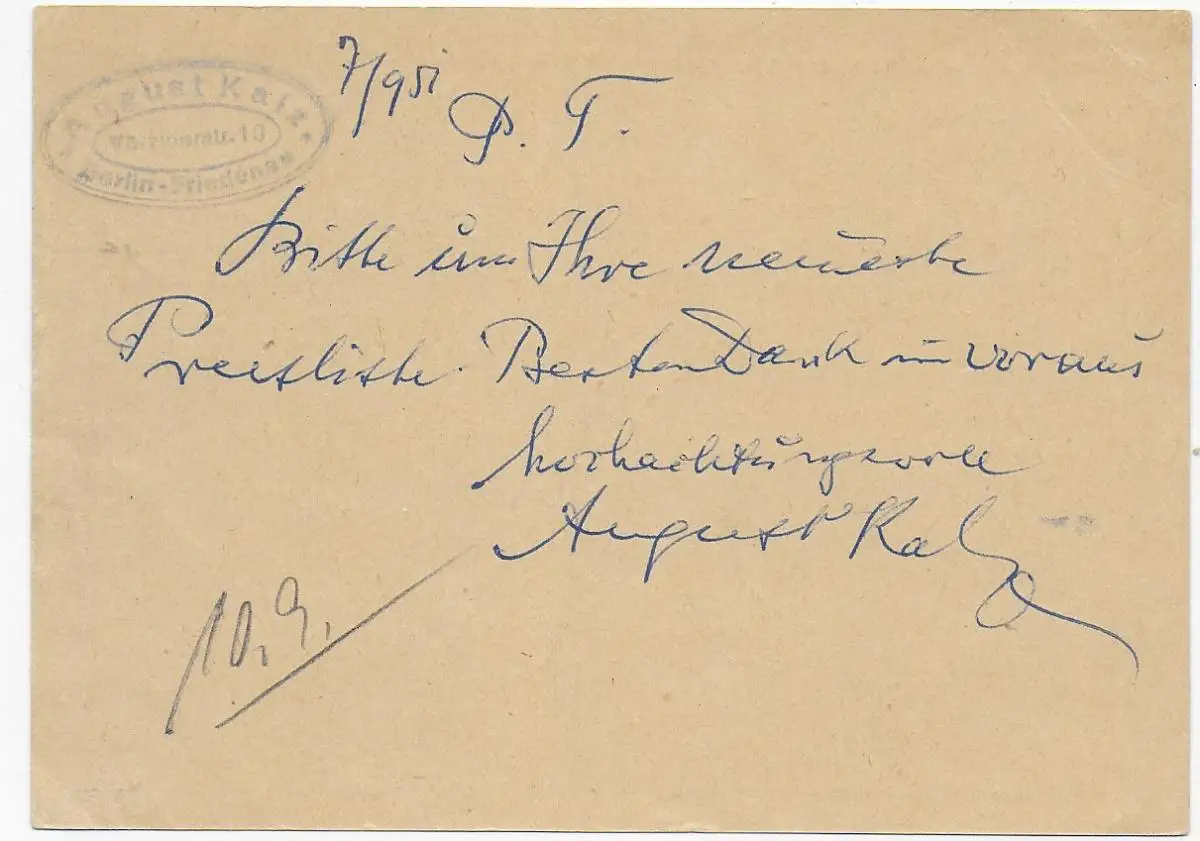 August Katz
str. 10
Berlin-Friedenau
7/9 51
P. T.
Bitte um Ihre neueste
Preisliste. Besten Dank im voraus
hochachtungsvoll
August Katz
10.9.